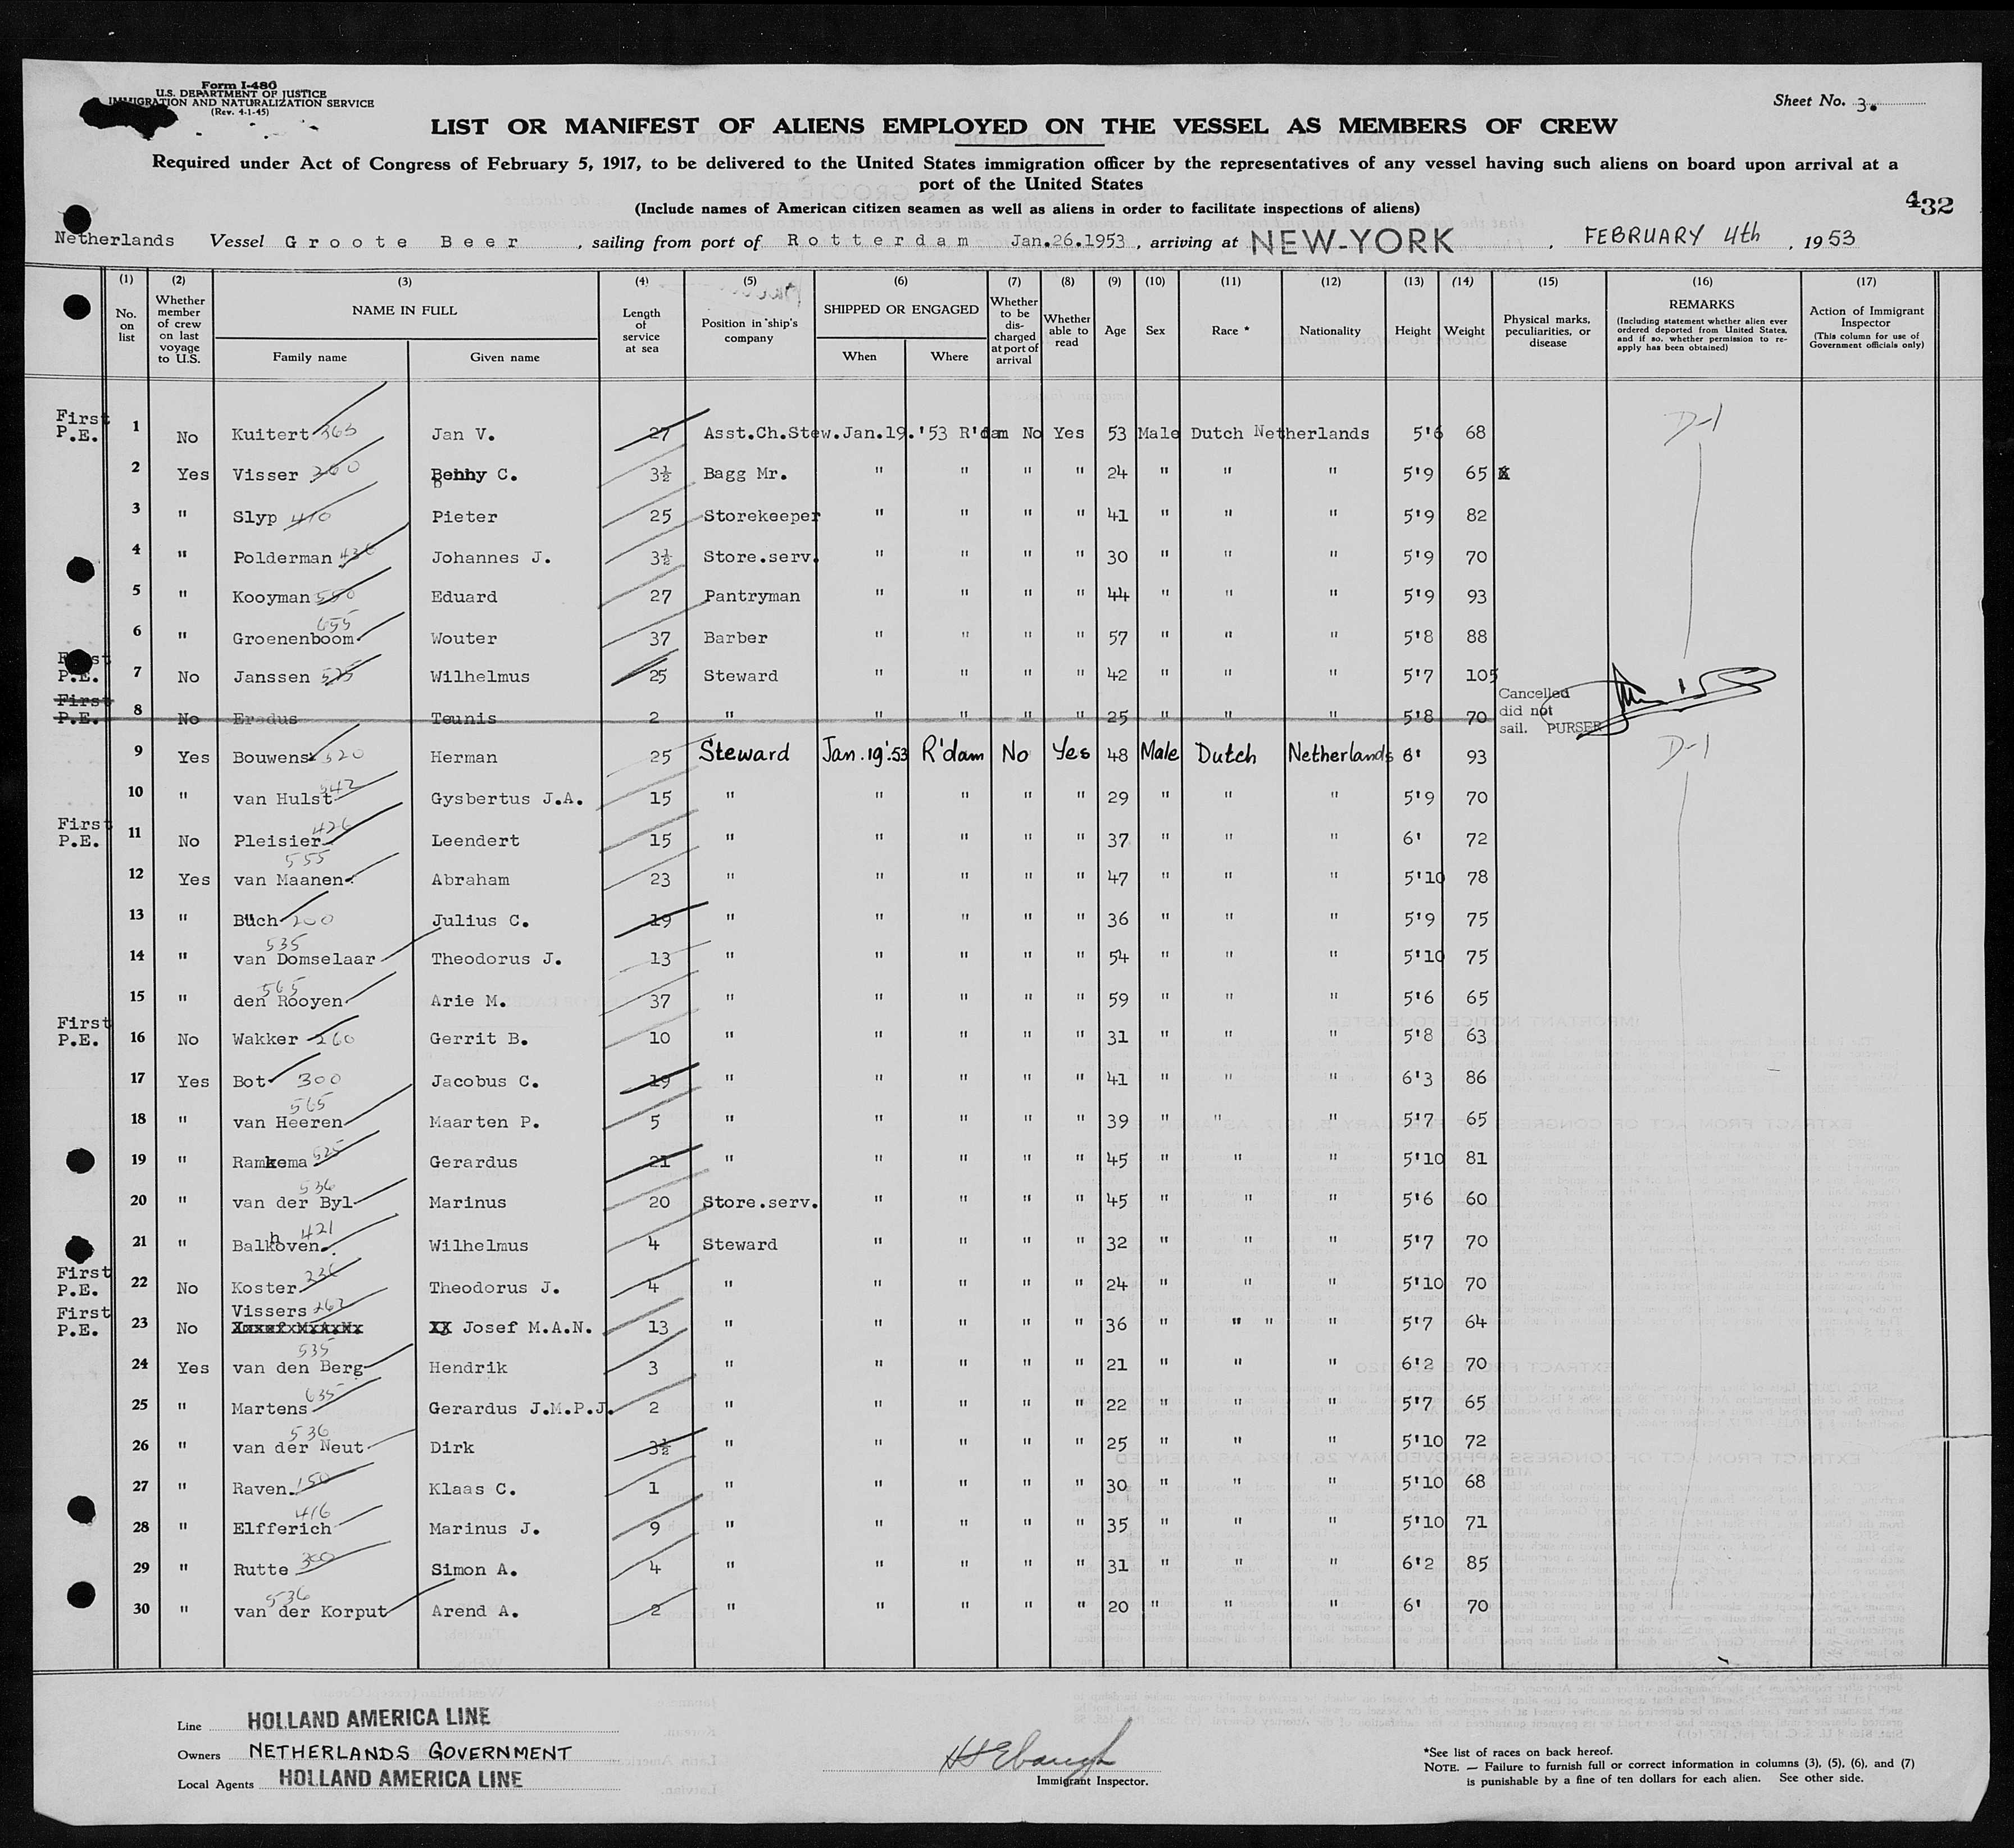 Form I-486
U.S. DEPARTMENT OF JUSTICE
IMMIGRATION AND NATURALIZATION SERVICE
(Rev. 4-1-45)
Sheet No. 3.
LIST OR MANIFEST OF ALIENS EMPLOYED ON THE VESSEL AS MEMBERS OF CREW
Required under Act of Congress of February 5, 1917, to be delivered to the United States immigration officer by the representatives of any vessel having such aliens on board upon arrival at a
port of the United States
432
(Include names of American citizen seamen as well as aliens in order to facilitate inspections of aliens)
Netherlands Vessel Groote Beer, sailing from port of Rotterdam Jan.26.1953, arriving at NEW-YORK, FEBRUARY 4th, 1953
(1) No. on list (2) Whether member of crew on last voyage to U.S. (3) NAME IN FULL Family name Given name (4) Length of service at sea (5) Position in ship's company (6) SHIPPED OR ENGAGED When Where (7) Whether to be discharged at port of arrival (8) Whether able to read (9) Age (10) Sex (11) Race * (12) Nationality (13) Height (14) Weight (15) Physical marks, peculiarities, or disease (16) REMARKS (Including statement whether alien ever ordered deported from United States, and if so, whether permission to reapply has been obtained) (17) Action of Immigrant Inspector (This column for use of Government officials only)
First P.E. 1 No Kuitert 363 Jan V. 27 Asst.Ch.Stew. Jan.19.'53 R'dam No Yes 53 Male Dutch Netherlands 5'6 68 D-1
2 Yes Visser 260 Benny C. 3½ Bagg Mr. " " " " 24 " " " 5'9 65
3 " Slyp 410 Pieter 25 Storekeeper " " " " 41 " " " 5'9 82
4 " Polderman 436 Johannes J. 3½ Store.serv. " " " " 30 " " " 5'9 70
5 " Kooyman 550 Eduard 27 Pantryman " " " " 44 " " " 5'9 93
6 " Groenenboom 655 Wouter 37 Barber " " " " 57 " " " 5'8 88
First P.E. 7 No Janssen 525 Wilhelmus 25 Steward " " " " 42 " " " 5'7 105
First P.E. 8 No Eradus Teunis 2 " " " " " 25 " " " 5'8 70 Cancelled did not sail. PURSER
9 Yes Bouwens 520 Herman 25 Steward Jan.19'.53 R'dam No Yes 48 Male Dutch Netherlands 6' 93 D-1
10 " van Hulst 542 Gysbertus J.A. 15 " " " " " 29 " " " 5'9 70
First P.E. 11 No Pleisier 426 Leendert 15 " " " " " 37 " " " 6' 72
12 Yes van Maanen 555 Abraham 23 " " " " " 47 " " " 5'10 78
13 " Büch 200 Julius C. 19 " " " " " 36 " " " 5'9 75
14 " van Domselaar 535 Theodorus J. 13 " " " " " 54 " " " 5'10 75
15 " den Rooyen 565 Arie M. 37 " " " " " 59 " " " 5'6 65
First P.E. 16 No Wakker 260 Gerrit B. 10 " " " " " 31 " " " 5'8 63
17 Yes Bot 300 Jacobus C. 19 " " " " " 41 " " " 6'3 86
18 " van Heeren 565 Maarten P. 5 " " " " " 39 " " " 5'7 65
19 " Ramkema 525 Gerardus 21 " " " " " 45 " " " 5'10 81
20 " van der Byl 536 Marinus 20 Store.serv. " " " " 45 " " " 5'6 60
21 " Balkhoven 421 Wilhelmus 4 Steward " " " " 32 " " " 5'7 70
First P.E. 22 No Koster 236 Theodorus J. 4 " " " " " 24 " " " 5'10 70
First P.E. 23 No Vissers 262 Josef M.A.N. 13 " " " " " 36 " " " " 5'7 64
24 Yes van den Berg 535 Hendrik 3 " " " " " 21 " " " 6'2 70
25 " Martens 635 Gerardus J.M.P.J. 2 " " " " " 22 " " " 5'7 65
26 " van der Neut 536 Dirk 3½ " " " " " 25 " " " 5'10 72
27 " Raven 150 Klaas C. 1 " " " " " 30 " " " 5'10 68
28 " Elfferich 416 Marinus J. 9 " " " " " 35 " " " 5'10 71
29 " Rutte 300 Simon A. 4 " " " " " 31 " " " 6'2 85
30 " van der Korput 536 Arend A. 2 " " " " " 20 " " " 6' 70
Line HOLLAND AMERICA LINE
Owners NETHERLANDS GOVERNMENT
Local Agents HOLLAND AMERICA LINE
Immigrant Inspector.
*See list of races on back hereof.
NOTE. — Failure to furnish full or correct information in columns (3), (5), (6), and (7)
is punishable by a fine of ten dollars for each alien. See other side.